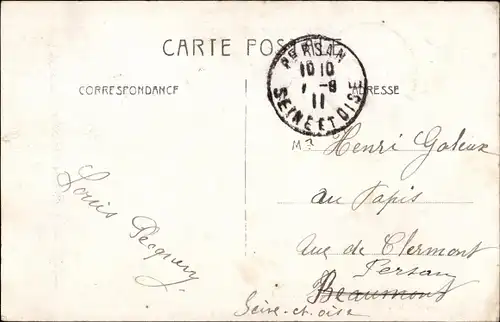 CARTE POSTALE
CORRESPONDANCE
ADRESSE
PERSAN
10 10
1 - 8
11
SEINE ET OISE
Louis Pecquery
Mr
Henri Galeux
au Tapis
rue de Clermont
Persan
Beaumont
Seine-et-oise